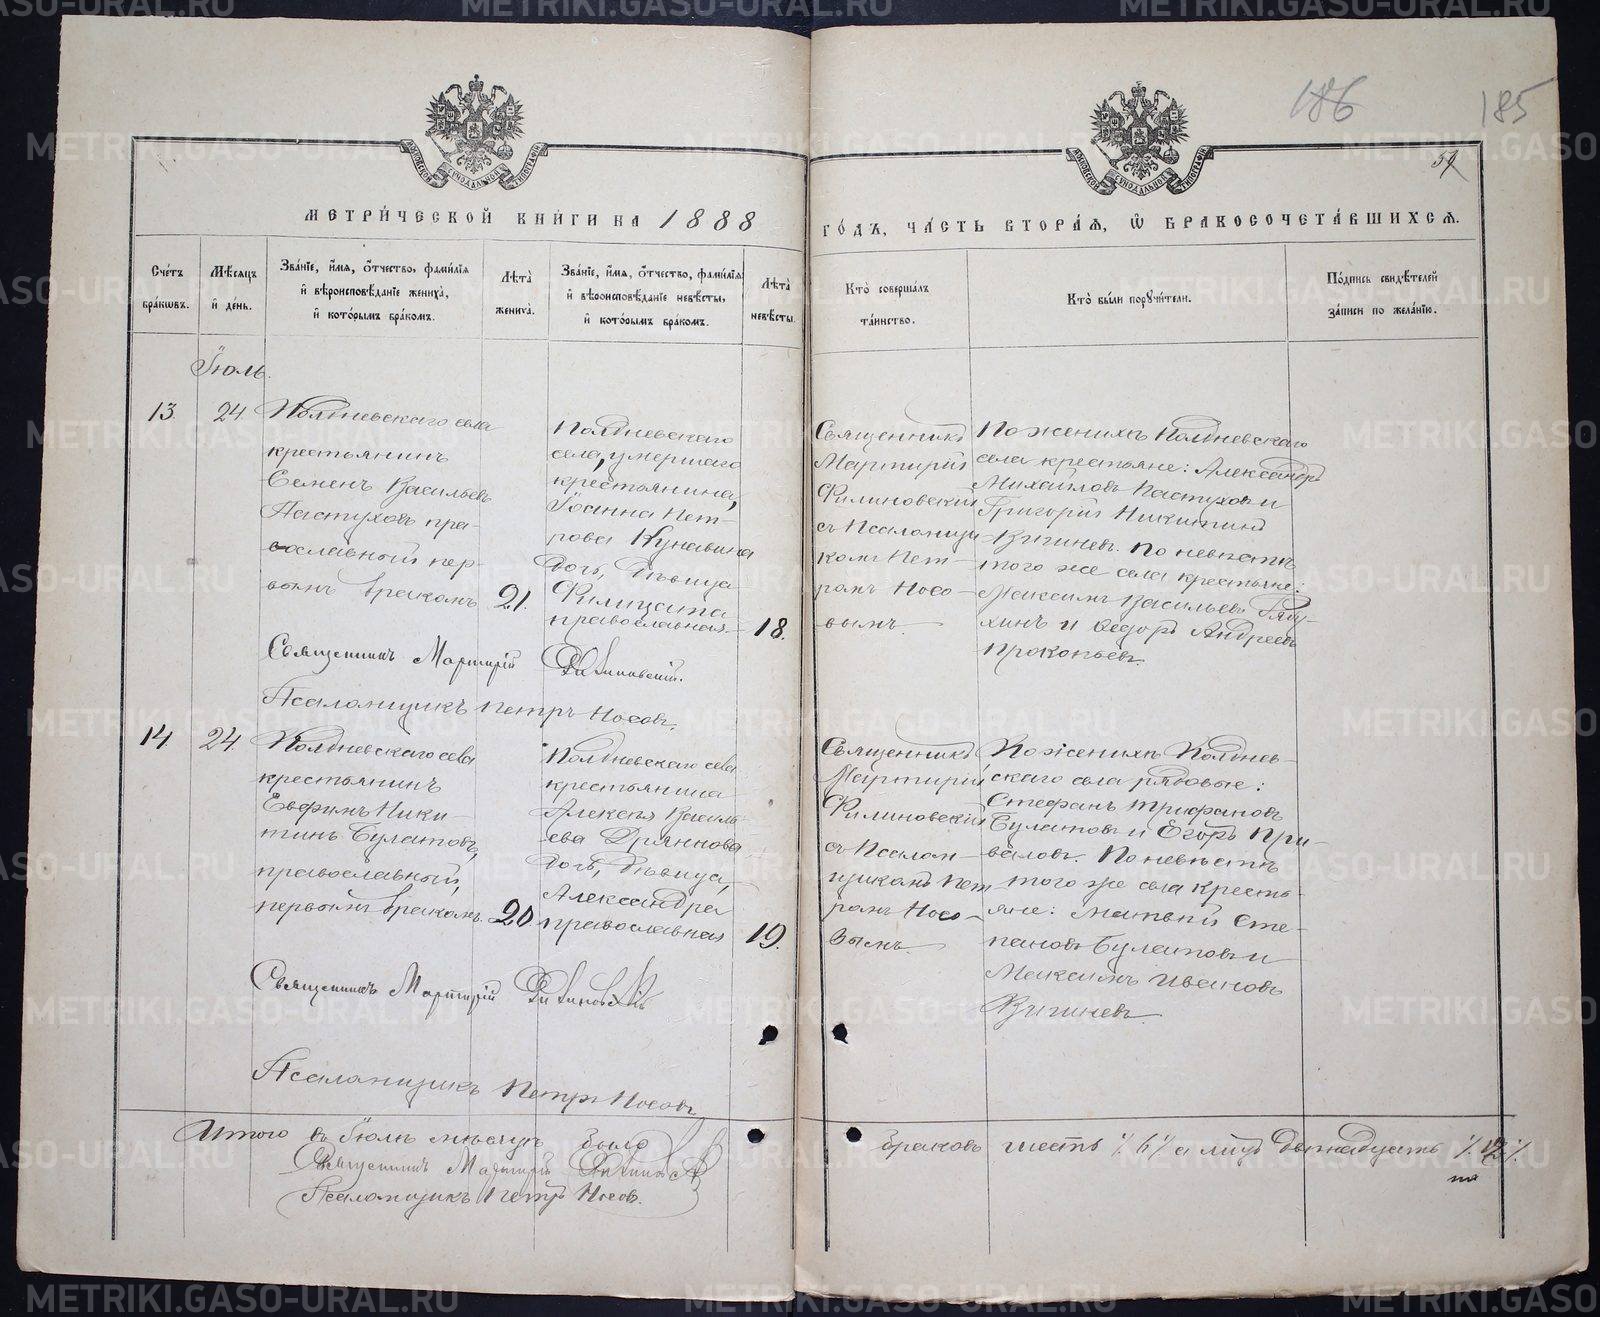 186
185
МОСКОВСКОЙ СѴНОДАЛЬНОЙ ТИПОГРАФІИ
МОСКОВСКОЙ СѴНОДАЛЬНОЙ ТИПОГРАФІИ
МЕТРИ́ЧЕСКОЙ КНИ́ГИ НА 1888
ГО́ДЪ, ЧА́СТЬ ВТОРА́Я, Ѡ БРАКОСОЧЕТА́ВШИХСЯ.
Сче́тъ бра́кѡвъ.
Мѣ́сяцъ и҆ де́нь.
Зва́нїе, и҆́мя, ѻ҆́тчество, фами́лїя
и҆ вѣроисповѣ́данїе жениха̀,
и҆ кото́рымъ бра́комъ.
Лѣ́та жениха̀.
Зва́нїе, и҆́мя, ѻ҆́тчество, фами́лїя
и҆ вѣроисповѣ́данїе невѣ́сты,
и҆ кото́рымъ бра́комъ.
Лѣ́та невѣ́сты.
Кто̀ соверша́лъ
та́инство.
Кто̀ бы́ли порꙋчи́тели.
По́дпись свидѣ́телей
за́писи по жела́нїю.
Іюль.
13.
24
Полдневскаго села
крестьянинъ
Семенъ Васильевъ
Пастуховъ пра-
вославный пер-
вымъ бракомъ
21.
Полдневскаго
села, умершаго
крестьянина,
Іоанна Пет-
рова Кунавина
дочь, дѣвица
Филицата
православная.
18.
Священникъ
Мартирій
Филиновскій
съ Псаломщи
комъ Пет-
ромъ Носо-
вымъ.
По женихѣ Полдневскаго
села крестьяне: Александръ
Михайловъ Пастуховъ и
Григорій Никитинъ
Вигиневъ. По невѣстѣ
того же села крестьяне:
Максимъ Васильевъ
и Ѳедоръ Андреевъ
Прокопьевъ.
Священникъ Мартирій Филиновскій.
Псаломщикъ Петръ Носовъ.
14.
24.
Полдневскаго села
крестьянинъ
Евфимъ Ники-
тинъ Булатовъ,
православный,
первымъ бракомъ.
20.
Полдневскаго села
крестьянина
Алексѣя Василь-
ева Дрянкова
дочь, дѣвица,
Александра
православная
19.
Священникъ
Мартирій
Филиновскій
съ Псалом-
щикомъ Пет
ромъ Носо-
вымъ.
По женихѣ Полднев-
скаго села рядовые:
Стефанъ Трифановъ
Булатовъ и Егоръ При-
валовъ. По невѣстѣ
того же села кресть-
яне: Матвѣй Сте-
пановъ Булатовъ и
Максимъ Ивановъ
Вигиневъ.
Священникъ Мартирій Филиновскій
Псаломщикъ Петръ Носовъ
Итого въ Іюлѣ мѣсяцѣ было
браковъ шесть ٪ 6 ٪ а лицъ двѣнадцать ٪ 12 ٪
Священникъ Мартирій
Псаломщикъ Петръ Носовъ.
METRIKI.GASO-URAL.RU